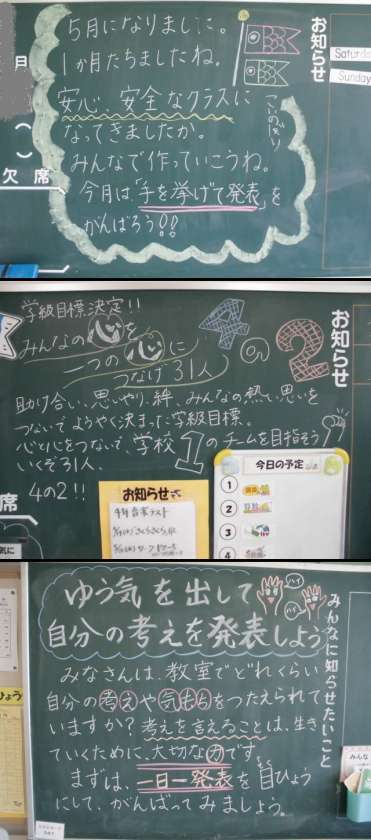 5月になりました。
1か月たちましたね。
安心、安全なクラスに
なってきましたか。
みんなで作っていこうね。
今月は、「手を挙げて発表」を
がんばろう!!
こいのぼり
お知らせ
Saturd
Sunday
月
欠席
学級目標決定!!
みんなの心を
一つの心に
つなげ31人
4の2
お知らせ
助け合い、思いやり、絆、みんなの熱い思いを
つないでようやく決まった学級目標。
心と心をつないで、学校1のチームを目指そう
いくぞ31人、
4の2!!
席
お知らせ
今日の予定
1
2
3
4
ゆう気を出して
自分の考えを発表しよう
ハイ
ハイ
みなさんは、教室でどれくらい
自分の考えや気もちをつたえられて
いますか?考えを言えることは、生き
ていくために、大切な力です。
まずは、一日一発表を目ひょう
にして、がんばってみましょう。
みんなに知らせたいこと
ひょう
みんな